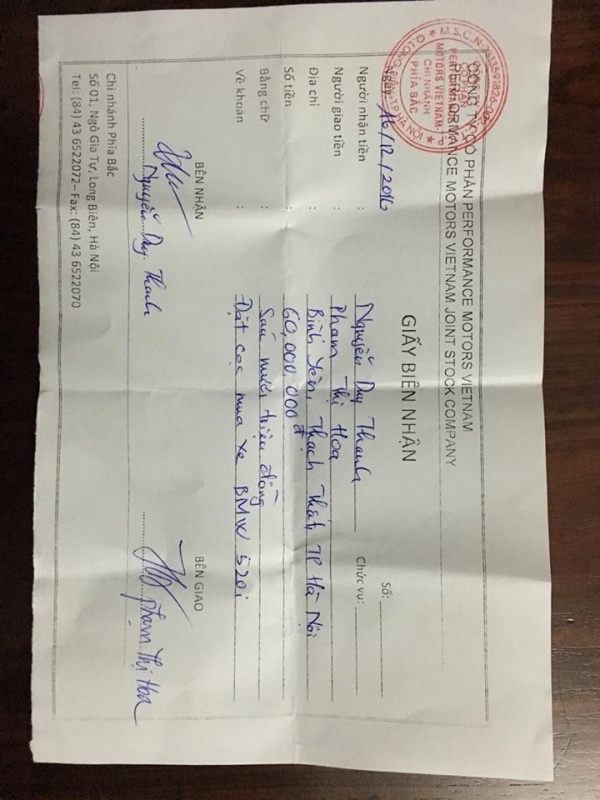 CÔNG TY CỔ PHẦN PERFORMANCE MOTORS VIETNAM
PERFORMANCE MOTORS VIETNAM JOINT STOCK COMPANY
M.S.C.N
PERFORMANCE
MOTORS VIETNAM
CHI NHÁNH
PHÍA BẮC
LONG BIÊN - TP HÀ NỘI
GIẤY BIÊN NHẬN
Ngày 16/12/2016
Số:
Người nhận tiền : Nguyễn Duy Thanh Chức vụ:
Người giao tiền : Phạm Thị Hoa
Địa chỉ : Bình Yên, Thạch Thất, TP Hà Nội
Số tiền : 60,000,000đ
Bằng chữ : Sáu mươi triệu đồng
Về khoản : Đặt cọc mua xe BMW 520i
BÊN NHẬN BÊN GIAO
Nguyễn Duy Thanh Phạm Thị Hoa
Chi nhánh Phía Bắc
Số 01, Ngô Gia Tự, Long Biên, Hà Nội
Tel: (84) 43 6522072– Fax: (84) 43 6522070